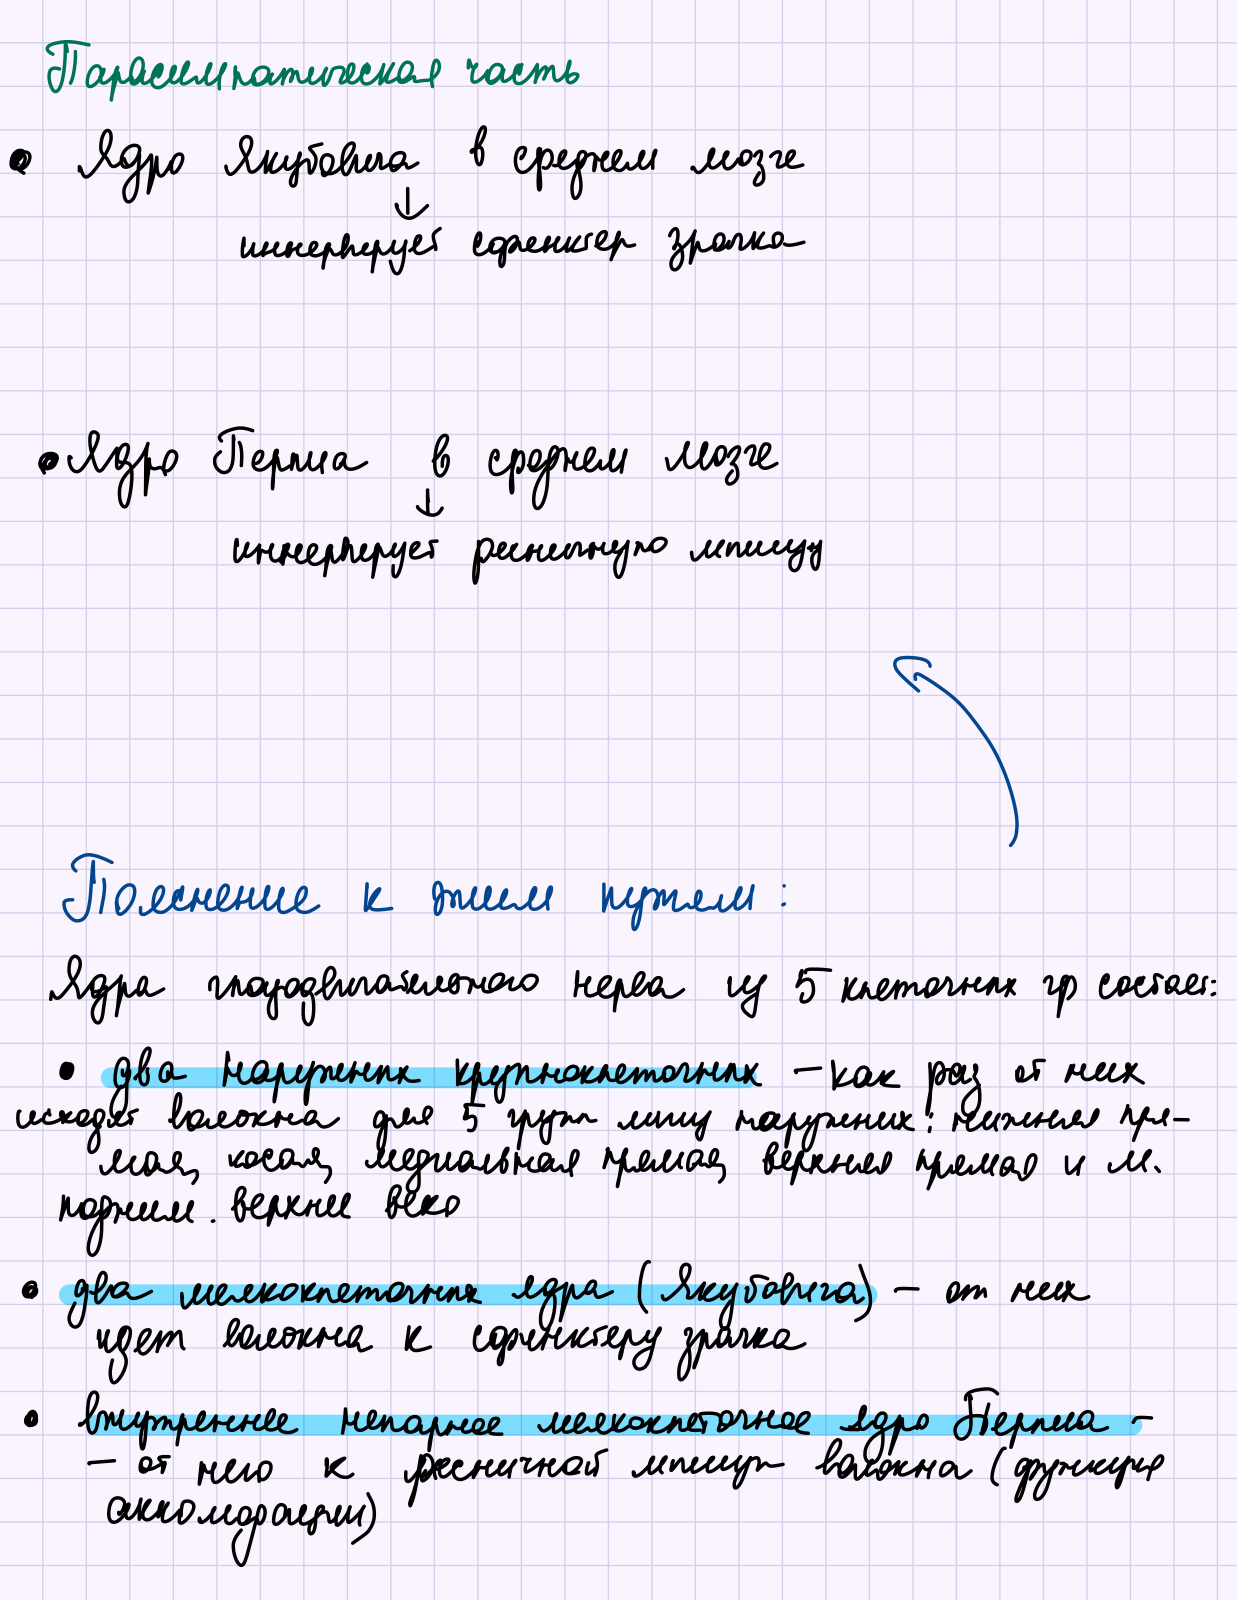 Парасимпатическая часть
• Ядро Якубовича в среднем мозге
↓
иннервирует сфинктер зрачка
• Ядро Перлиа в среднем мозге
↓
иннервирует ресничную мышцу
Пояснение к этим путям:
Ядра глазодвигательного нерва из 5 клеточных гр состоит:
• два наружных крупноклеточных – как раз от них
исходят волокна для 5 групп мышц наружных: нижняя пря-
мая, косая, медиальная прямая, верхняя прямая и м.
подним. верхнее веко
• два мелкоклеточных ядра (Якубовича) – от них
идет волокна к сфинктеру зрачка
• внутреннее непарное мелкоклеточное ядро Перлиа –
– от него к ресничной мышцы волокна (функция
аккомодации)